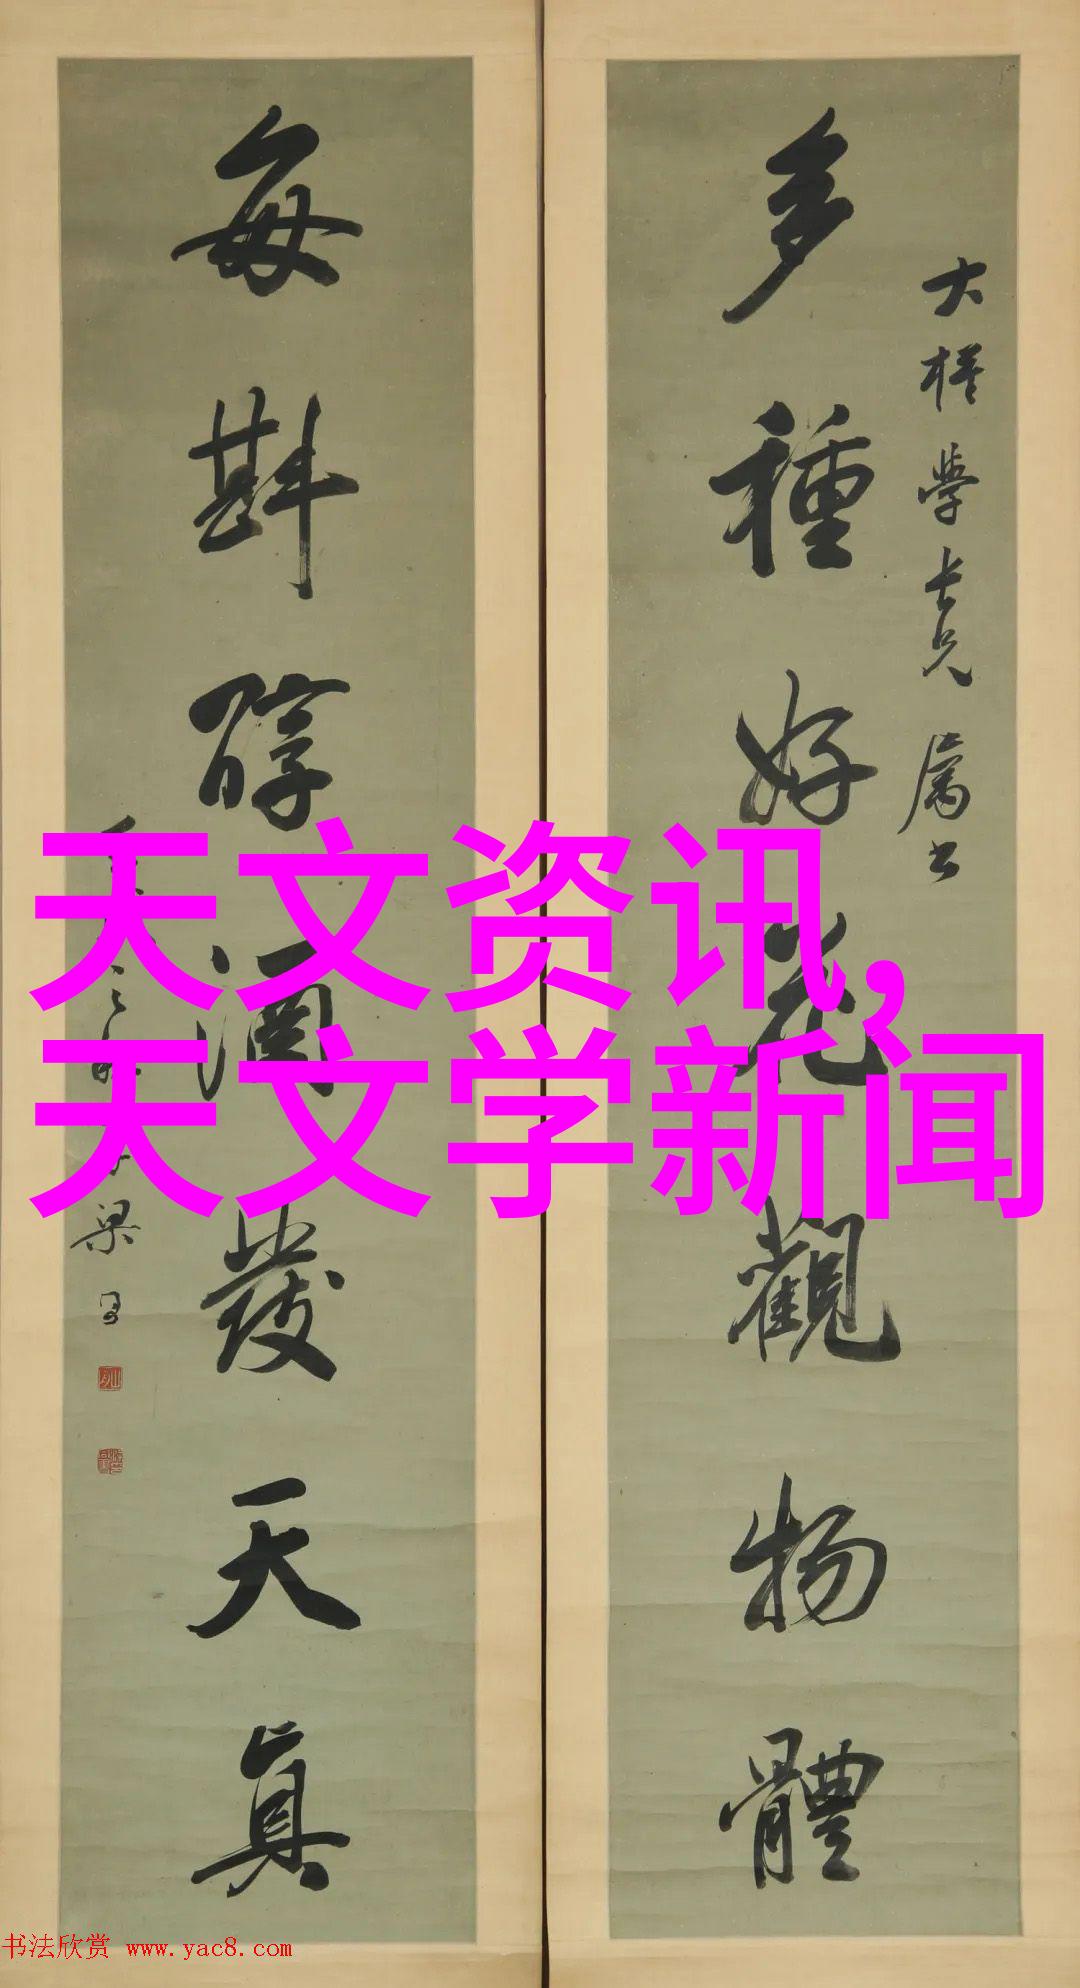 大楳學長兄 屬書
多種好花觀物體
每斟醇酒發天真
梁
天文资讯,
天文学新闻
书法欣赏 www.yac8.com